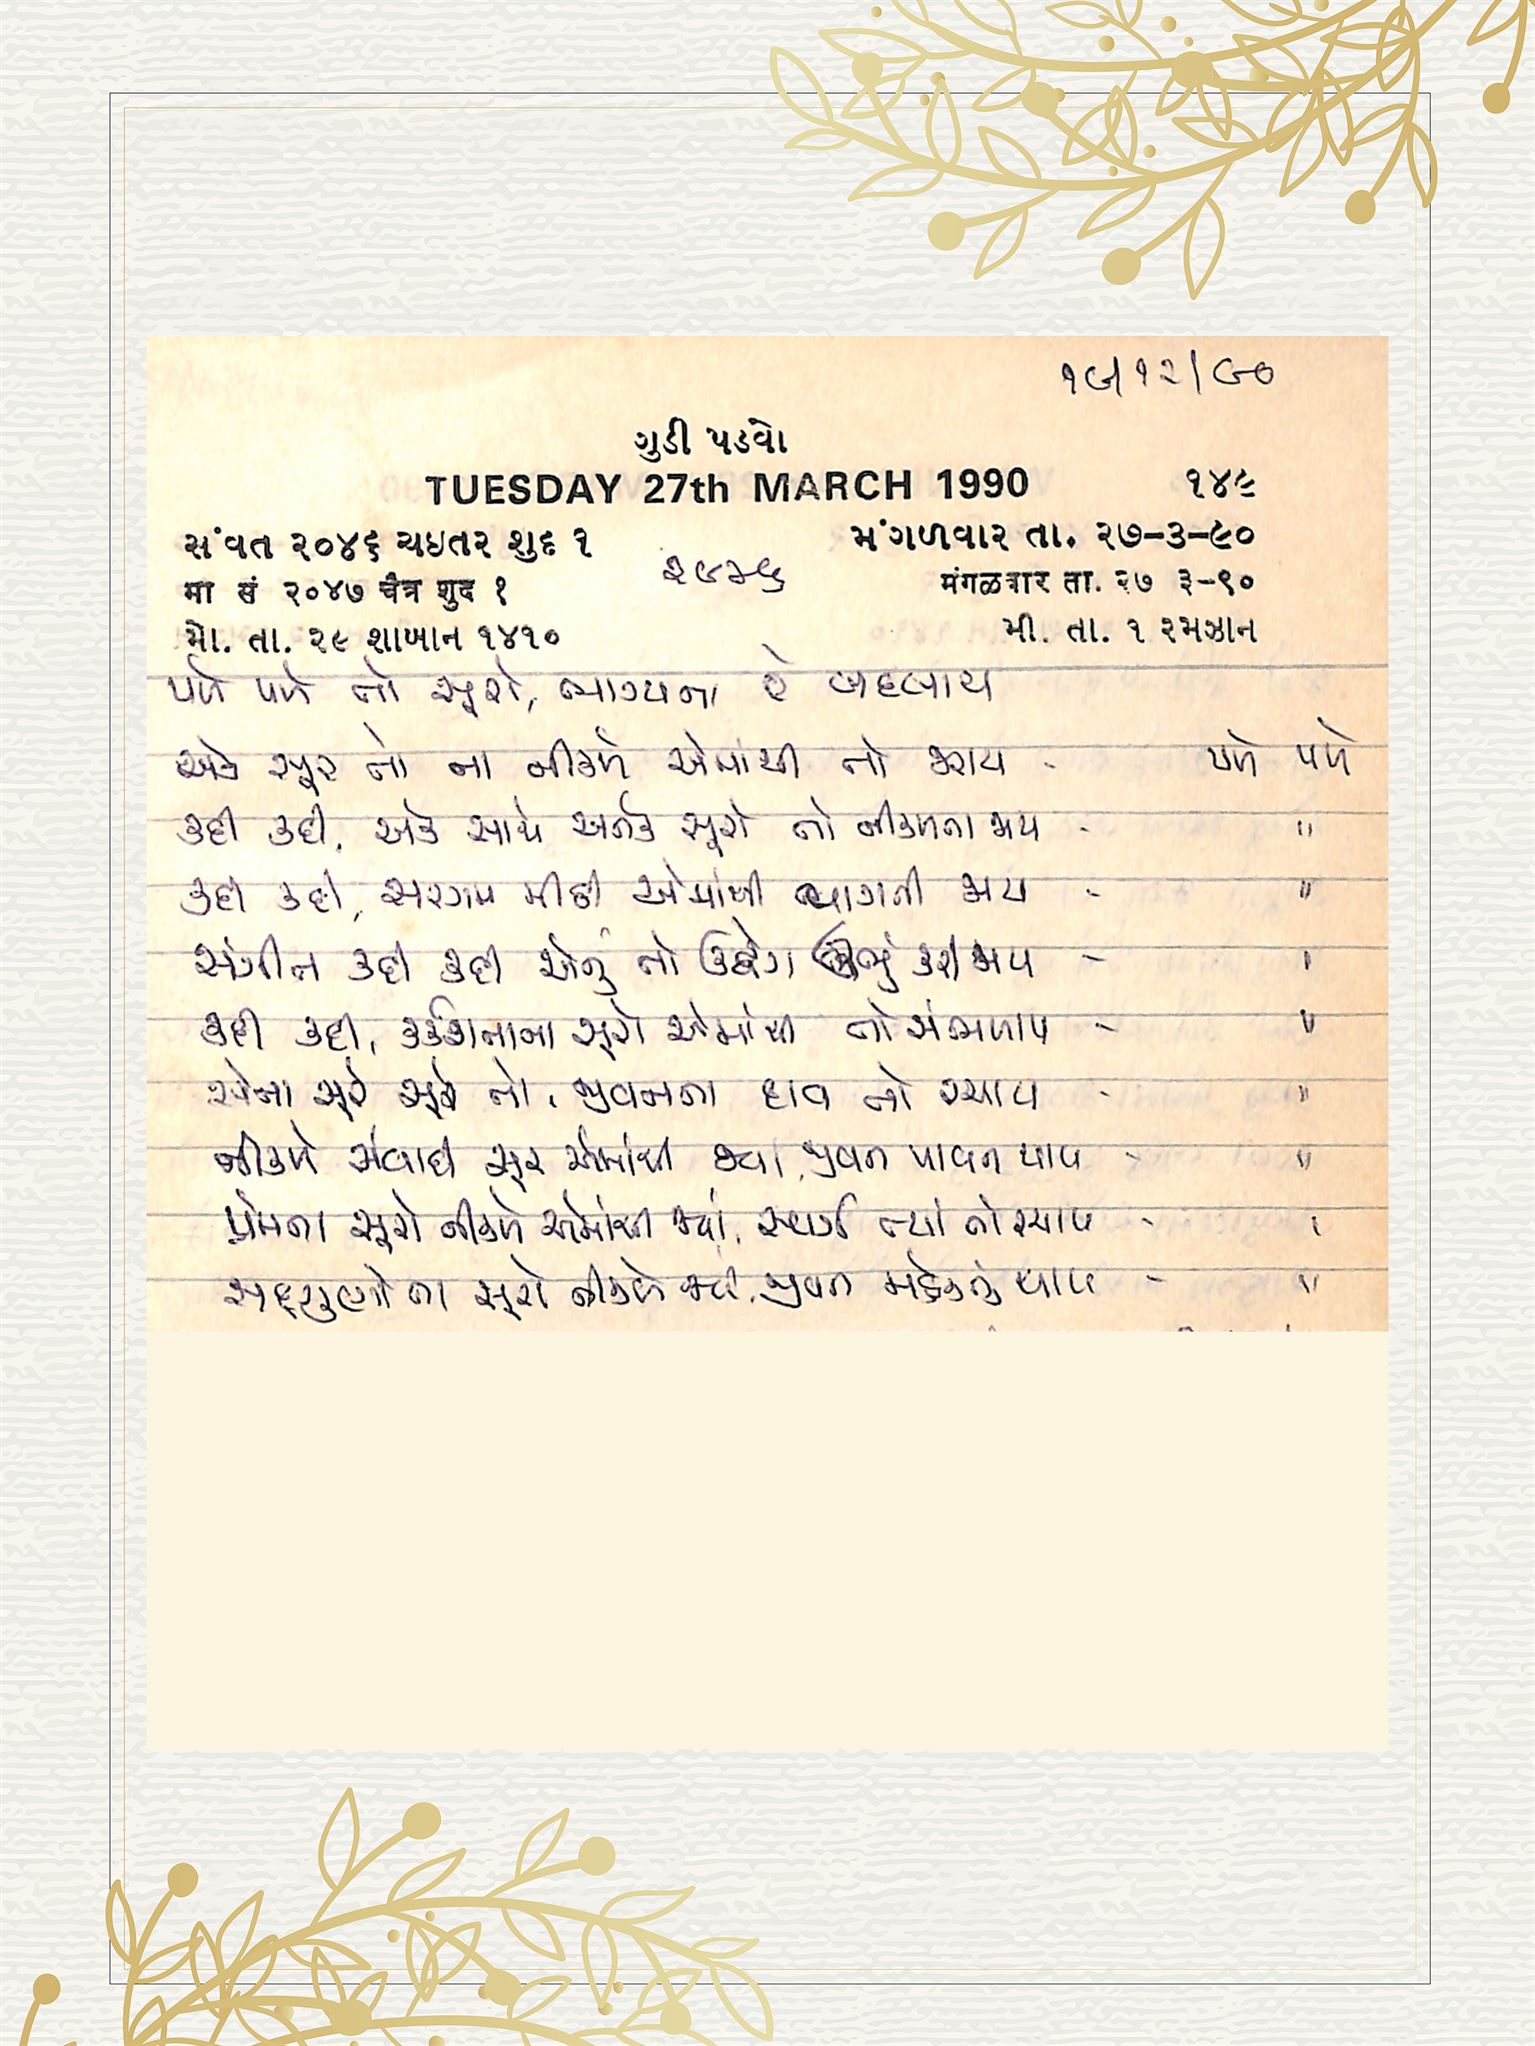 ૧૯/૧૨/૯૦
ગુડી પડવો
TUESDAY 27th MARCH 1990 ૧૪૯
સંવત ૨૦૪૬ ચઇતર શુદ ૧ મંગળવાર તા. ૨૭-૩-૯૦
मा सं २०४७ चैत्र शुद १ मंगळवार ता. २७ ३-९०
મો. તા. ૨૯ શાબાન ૧૪૧૦ મી. તા. ૧ રમઝાન
પળે પળે તો સૂરો, ભાગ્યના રે બદલાય
એક સૂર તો ના નીકળે એમાંથી તો સદાય - પળે પળે
કદી કદી, એક સાથે અનેક સૂરો તો નીકળતા જાય - "
કદી કદી, સરગમ મીઠી એમાંથી વાગતી જાય - "
સંગીત કદી કદી એનું તો ઉદ્વેગ ઊભું કરી જાય - "
કદી કદી, કર્કશતાના સૂરો એમાંથી તો સંભળાય - "
એના સૂરે સૂરે તો, જીવનના દાવ તો રચાય - "
નીકળે સંવાદી સૂર એમાંથી જ્યાં, જીવન પાવન થાય - "
પ્રેમના સૂરો નીકળે એમાંથી જ્યાં, સ્વર્ગ ત્યાં તો રચાય - "
સદ્ગુણોના સૂરો નીકળે જ્યાં, જીવન મહેકતું થાય - "